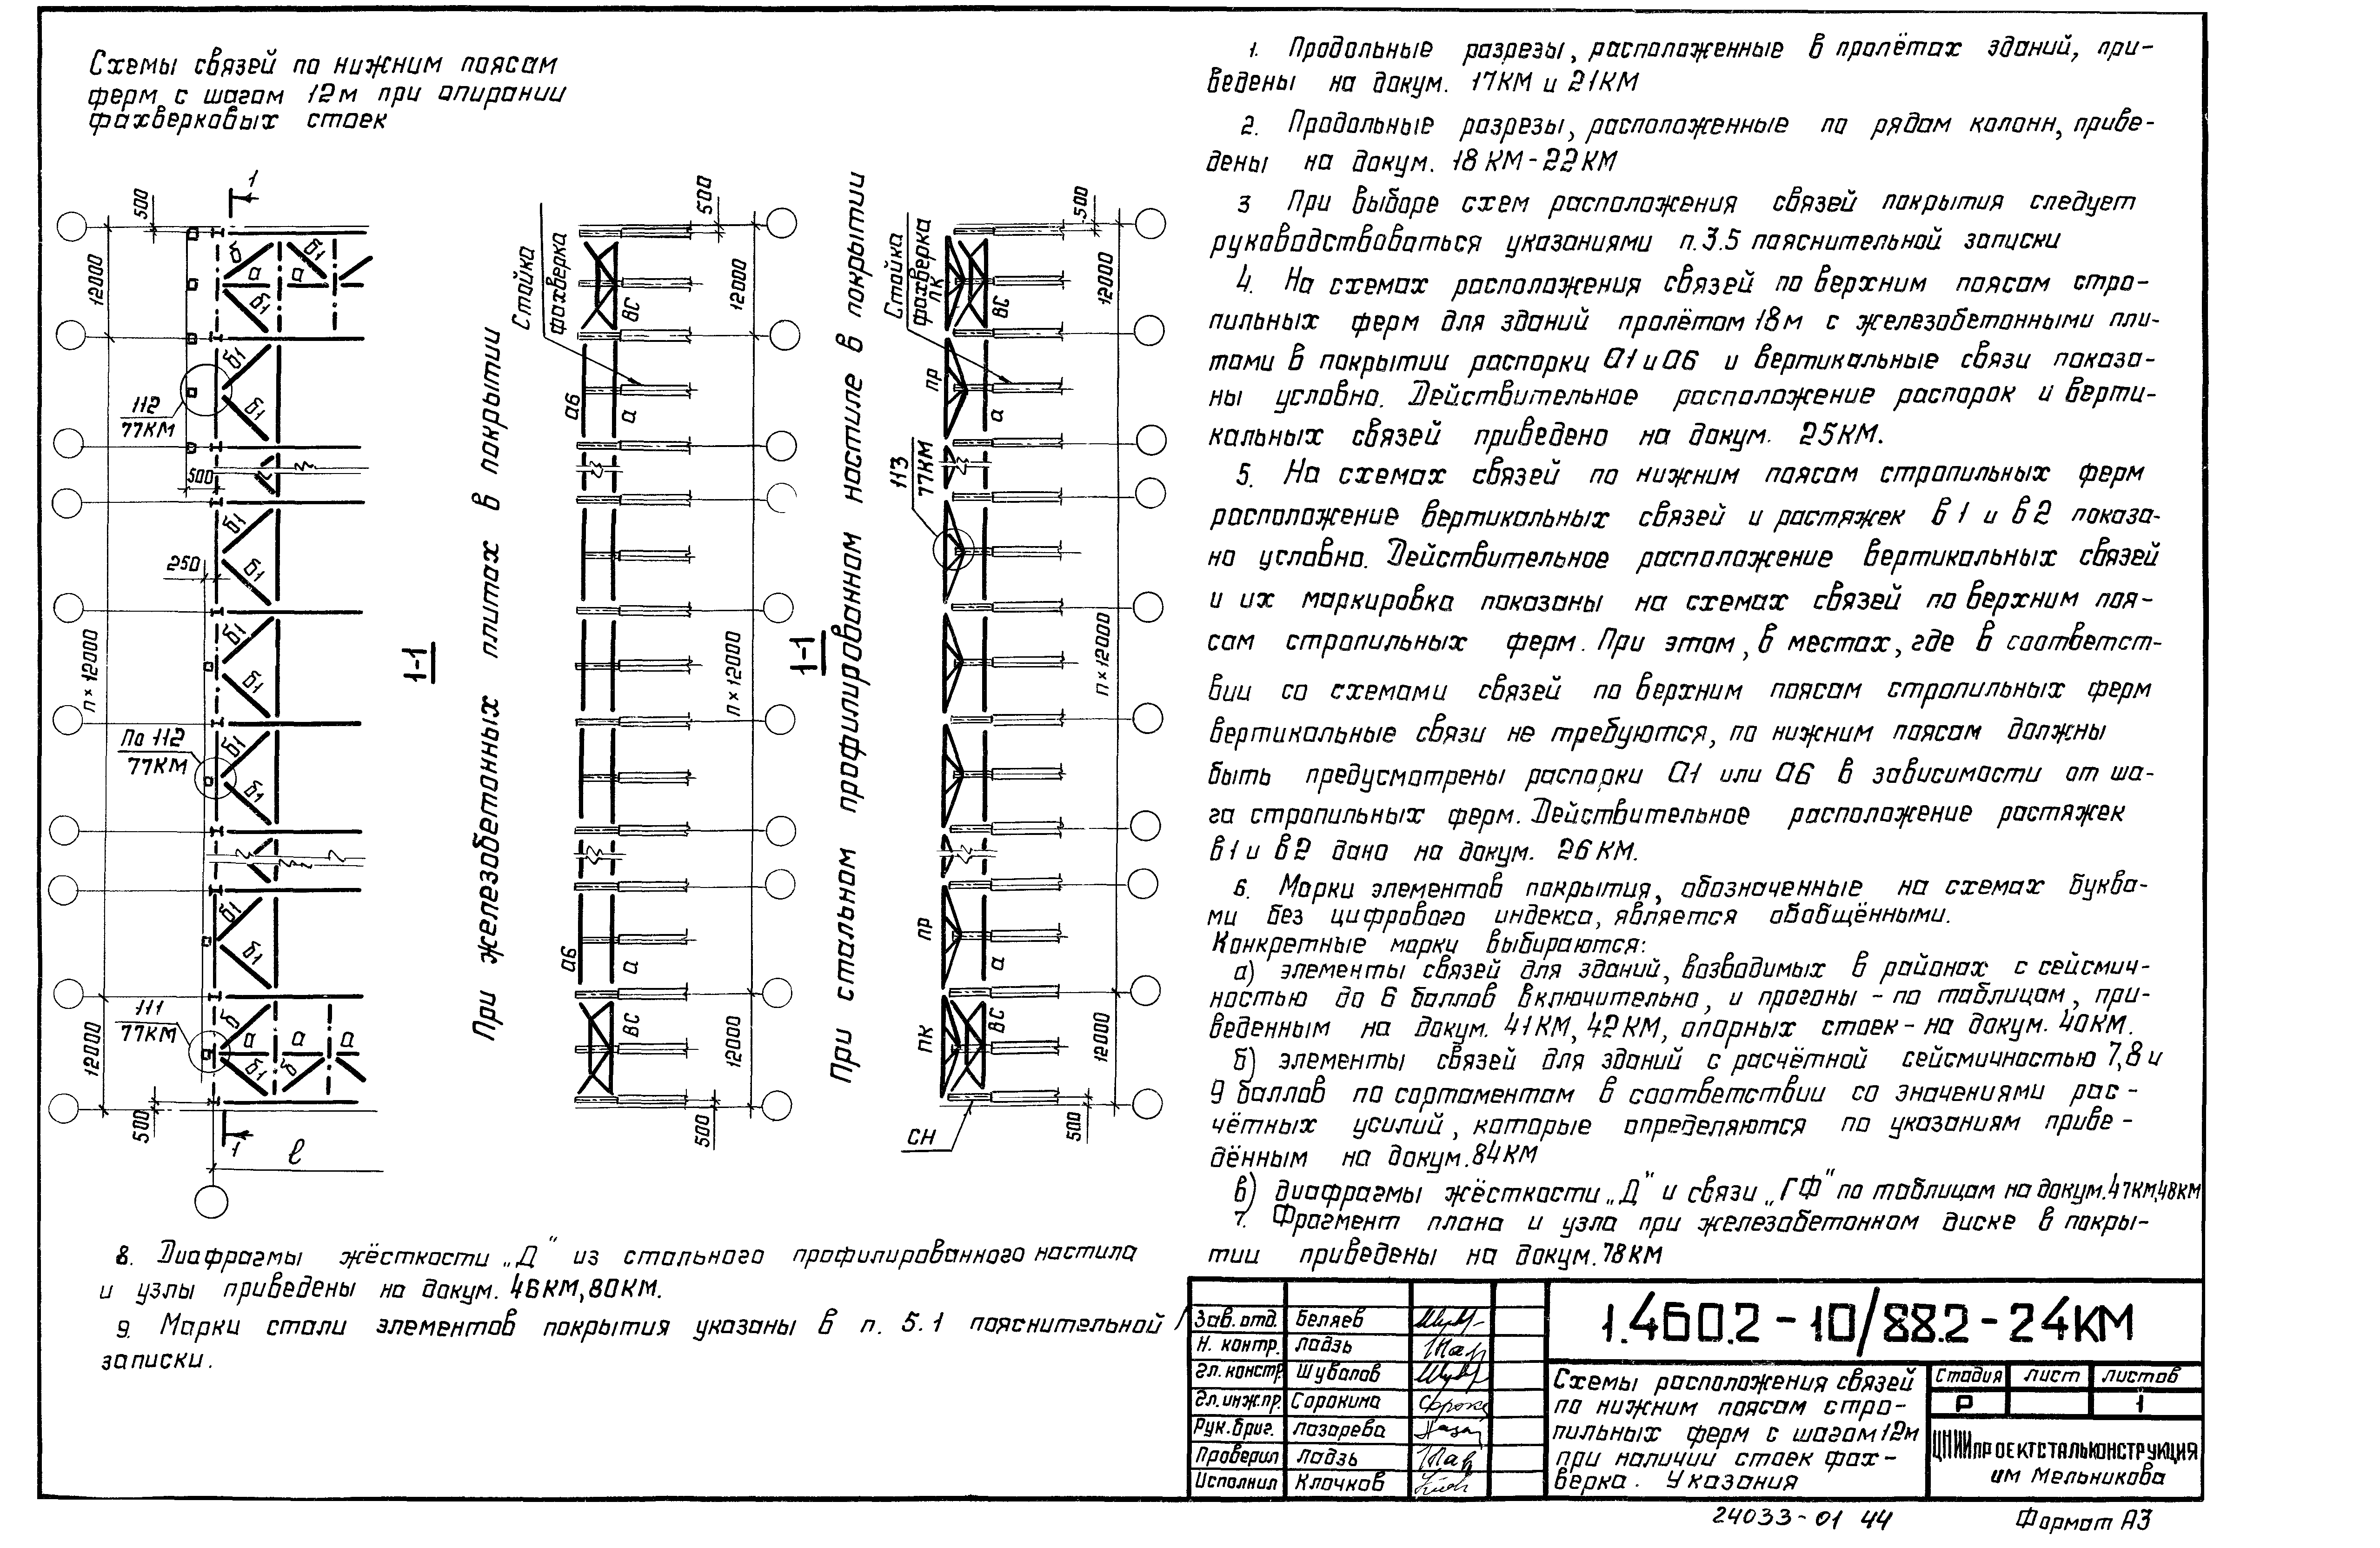 Схемы связей по нижним поясам
ферм с шагом 12м при опирании
фахверковых стоек
1
500
12000
б
б1
а
а
б1
б1
б1
112
77КМ
500
б1
б1
250
б1
б1
n×12000
По 112
77КМ
б1
б1
б1
б1
111
77КМ
б
а
а
а
б1
б
12000
500
1
ℓ
1-1
При железобетонных плитах в покрытии
Стойка
фахверка
500
12000
ВС
а6
а
n×12000
а6
а
ВС
12000
500
1-1
При стальном профилированном настиле в покрытии
Стойка
фахверка
500
12000
ПК
ВС
ПР
а
113
77КМ
n×12000
ПР
а
ПК
ВС
12000
500
СН
1. Продольные разрезы, расположенные в пролётах зданий, при-
ведены на докум. 17КМ и 21КМ
2. Продольные разрезы, расположенные по рядам колонн, приве-
дены на докум. 18КМ-22КМ
3 При выборе схем расположения связей покрытия следует
руководствоваться указаниями п.3.5 пояснительной записки
4. На схемах расположения связей по верхним поясам стро-
пильных ферм для зданий пролётом 18м с железобетонными пли-
тами в покрытии распорки а1 и а6 и вертикальные связи показа-
ны условно. Действительное расположение распорок и верти-
кальных связей приведено на докум. 25КМ.
5. На схемах связей по нижним поясам стропильных ферм
расположение вертикальных связей и растяжек в1 и в2 показа-
но условно. Действительное расположение вертикальных связей
и их маркировка показаны на схемах связей по верхним поя-
сам стропильных ферм. При этом, в местах, где в соответст-
вии со схемами связей по верхним поясам стропильных ферм
вертикальные связи не требуются, по нижним поясам должны
быть предусмотрены распорки а1 или а6 в зависимости от ша-
га стропильных ферм. Действительное расположение растяжек
в1 и в2 дано на докум. 26КМ.
6. Марки элементов покрытия, обозначенные на схемах буква-
ми без цифрового индекса, является обобщёнными.
Конкретные марки выбираются:
а) элементы связей для зданий, возводимых в районах с сейсмич-
ностью до 6 баллов включительно, и прогоны - по таблицам, при-
веденным на докум. 41КМ, 42КМ, опорных стоек - на докум. 40КМ.
б) элементы связей для зданий с расчётной сейсмичностью 7,8 и
9 баллов по сортаментам в соответствии со значениями рас-
чётных усилий, которые определяются по указаниям приве-
дённым на докум.84КМ
в) диафрагмы жёсткости „Д" и связи „ГФ" по таблицам на докум.47КМ,48КМ
7. Фрагмент плана и узла при железобетонном диске в покры-
тии приведены на докум.78КМ
8. Диафрагмы жёсткости „Д" из стального профилированного настила
и узлы приведены на докум. 46КМ,80КМ.
9. Марки стали элементов покрытия указаны в п. 5.1 пояснительной
записки.
Зав. отд. Беляев
Н. контр. Ладзь
Гл. констр. Шувалов
Гл. инж.пр. Сорокина
Рук.бриг. Лазарева
Проверил Ладзь
Исполнил Клочков
1.460.2-10/88.2-24КМ
Схемы расположения связей
по нижним поясам стро-
пильных ферм с шагом 12м
при наличии стоек фах-
верка. Указания
Стадия Лист Листов
Р 1
ЦНИИПРОЕКТСТАЛЬКОНСТРУКЦИЯ
им Мельникова
24033-01 44
Формат А3